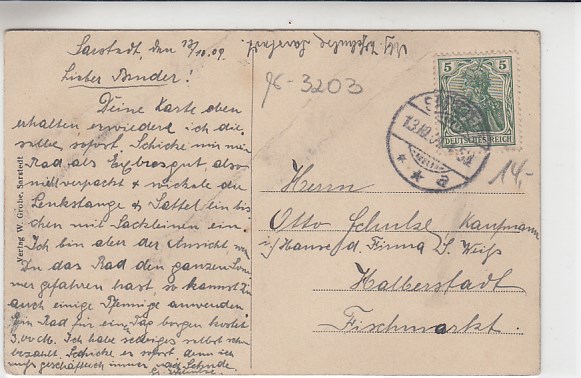 Sarstedt, den 13/10.09.
Lieber Bruder!
Deine Karte eben
erhalten erwiedere ich die-
selbe sofort. Schicke mir mein
Rad als Expressgut also
nicht verpackt & wickele die
Lenkstange & Sattel ein bis-
chen mit Sackleinen ein.
Ich bin aber der Ansicht wo
Du das Rad den ganzen Som-
mer gefahren hast so kannst Du
auch einige Pfennige anwenden
Ein Rad für ein Tag borgen kostet
3,00 M. Ich habe selbiges selbst schon
bezahlt. Schicke es sofort, denn ich
muß geschäftlich immer nach
Verlag W. Grobe, Sarstedt
96-3203
5 5
DEUTSCHES REICH
13.10.
* * a
14,-
Herrn
Otto Schulze Kaufmann
i/ Hause d. Firma L. Weiß
Halberstadt
Fischmarkt.